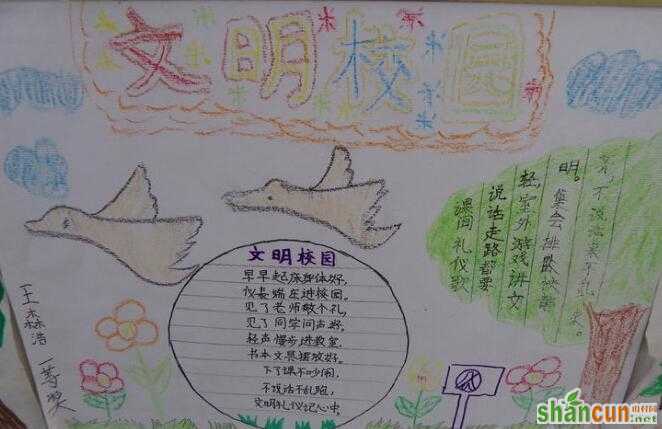 文明校园
课间礼仪歌
说话走路都要
轻,室外游戏讲文
明。集会排队
不说话来不乱
文明校园
早早起床身体好,
仪表端庄进校园。
见了老师敬个礼,
见了同学问声好。
轻声慢步进教室,
书本文具摆放好。
下了课不吵闹,
不说话不乱跑,
文明礼仪记心中。
王森浩 一等奖
shancun
.net